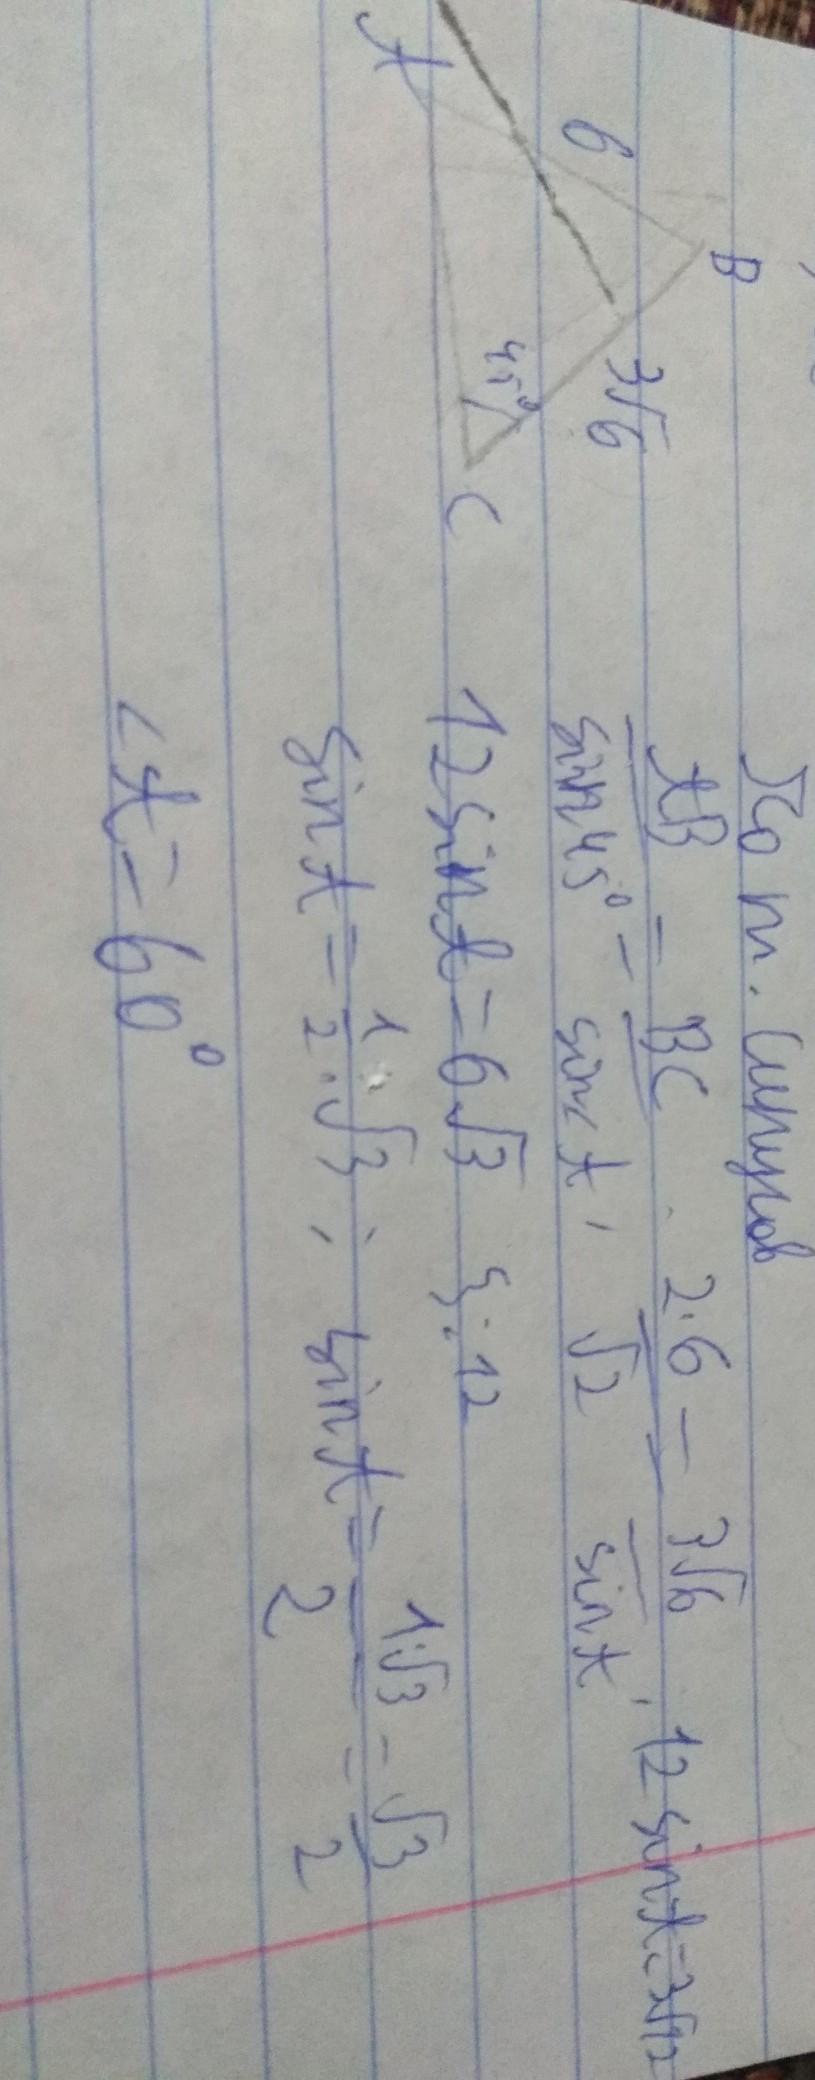 B
6
3√6
45°
A
C
По т. Синусов
AB/sin45° = BC/sin A, 2·6/√2 = 3√6/sin A, 12 sin A = 3√12
12 sin A = 6√3 } :12
sin A = 1/2·√3; sin A = 1·√3/2 = √3/2
∠A = 60°